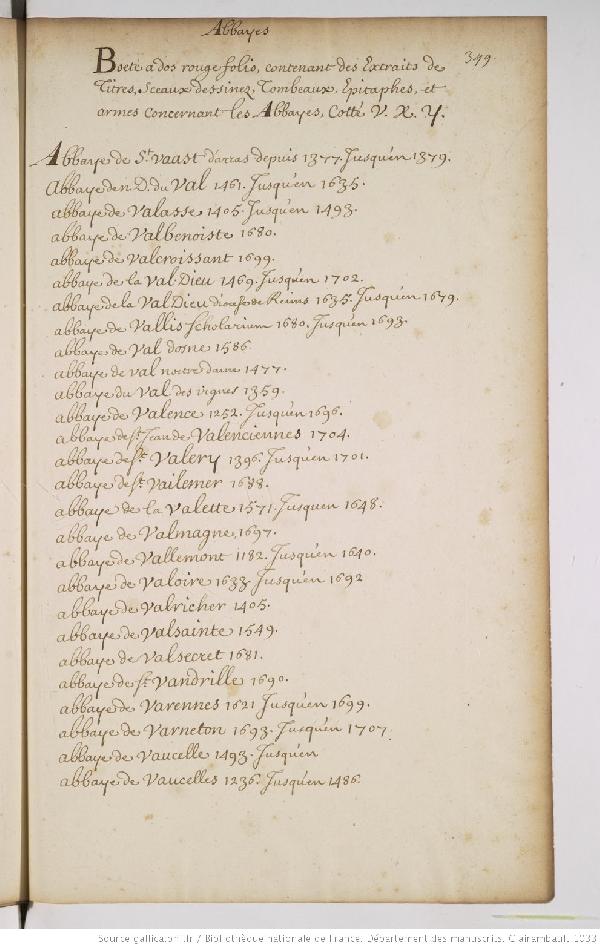 Abbayes
349.
Boete a dos rouge folio, contenant des Extraits de
Titres, Sceaux dessinez, Tombeaux, Epitaphes, et
armes Concernant les Abbayes, Cotté V. X. Y.
Abbaye de St. vaast d'arras depuis 1377. Jusqu'en 1379.
Abbaye de n. D. du Val 1461. Jusqu'en 1635.
abbaye de Valasse 1405. Jusqu'en 1493.
abbaye de Valbenoiste 1680.
abbaye de Valcroissant 1699.
abbaye de la Val Dieu 1469. Jusqu'en 1702.
abbaye de la Val Dieu diocese de Reims 1635. Jusqu'en 1679.
abbaye de Vallis Scholarium 1680. Jusqu'en 1693.
abbaye de Val dosne 1586.
abbaye de val nostre dame 1477.
abbaye du Val des vignes 1359.
abbaye de Valence 1252. Jusqu'en 1696.
abbaye de St. Jean de Valenciennes 1704.
abbaye de St. Valery 1396. Jusqu'en 1701.
abbaye de St. Vailemer 1688.
abbaye de la Valette 1571. Jusqu'en 1648.
abbaye de Valmagne 1697.
abbaye de Vallemont 1182. Jusqu'en 1640.
abbaye de Valoire 1633. Jusqu'en 1692
abbaye de Valricher 1405.
abbaye de Valsainte 1549.
abbaye de Valsecret 1681.
abbaye de St. Vandrille 1690.
abbaye de Varennes 1621 Jusqu'en 1699.
abbaye de Varneton 1693. Jusqu'en 1707
abbaye de Vaucelle 1493. Jusqu'en
abbaye de Vaucelles 1236. Jusqu'en 1486.
Source gallica.bnf.fr / Bibliothèque nationale de France. Département des manuscrits. Clairambault 1033